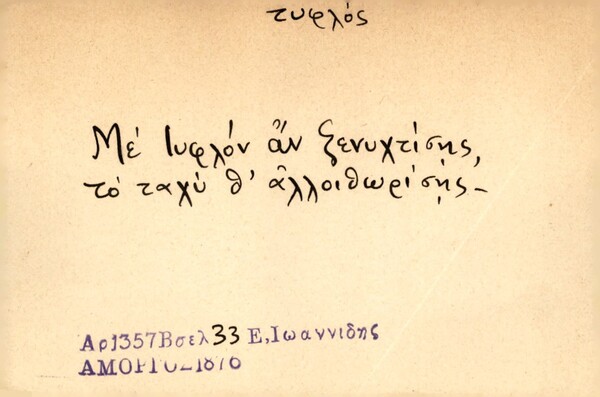 τυφλός
Μέ Τυφλόν ἄν ξενυχτίσης,
τό ταχύ θ' ἀλλοιθωρίσης_
Αρ1357Βσελ33 Ε,Ιωαννιδης
ΑΜΟΡΓΟΣ1876